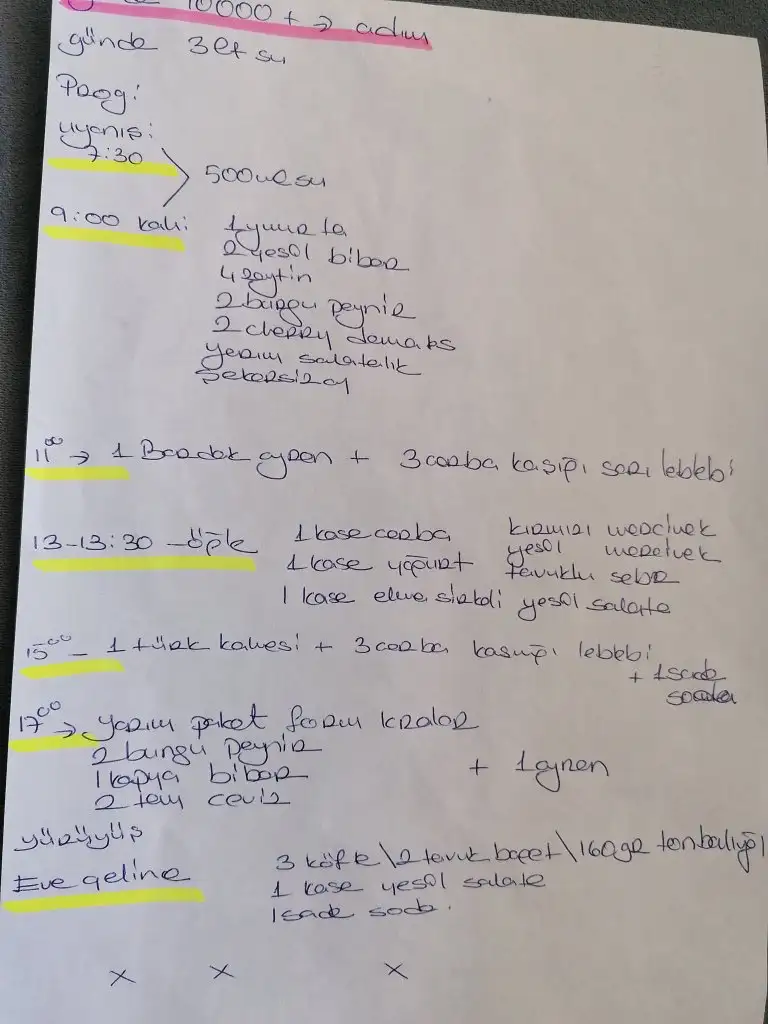 10000 + → adım
günde 3 lt su
Prog:
uyanış:
7:30
500 ml su
9:00 kah:
1 yumurta
2 yeşil biber
4 zeytin
2 burgu peynir
2 cherry domates
yarım salatalık
Şekersiz çay
11⁰⁰ → 1 Bardak ayran + 3 çorba kaşığı sarı leblebi
13-13:30 - öğle
1 kase çorba kırmızı mercimek
1 kase yoğurt yeşil mercimek
tavuklu sebze
1 kase elma sirkeli yeşil salata
15⁰⁰ - 1 türk kahvesi + 3 çorba kaşığı leblebi
+ 1 sade
soda
17⁰⁰ → yarım paket form kraker
2 burgu peynir
1 kapya biber + 1 ayran
2 tam ceviz
yürüyüş
Eve gelince
3 köfte \ 2 tavuk baget \ 160 gr ton balığı
1 kase yeşil salata
1 sade soda.
x x x